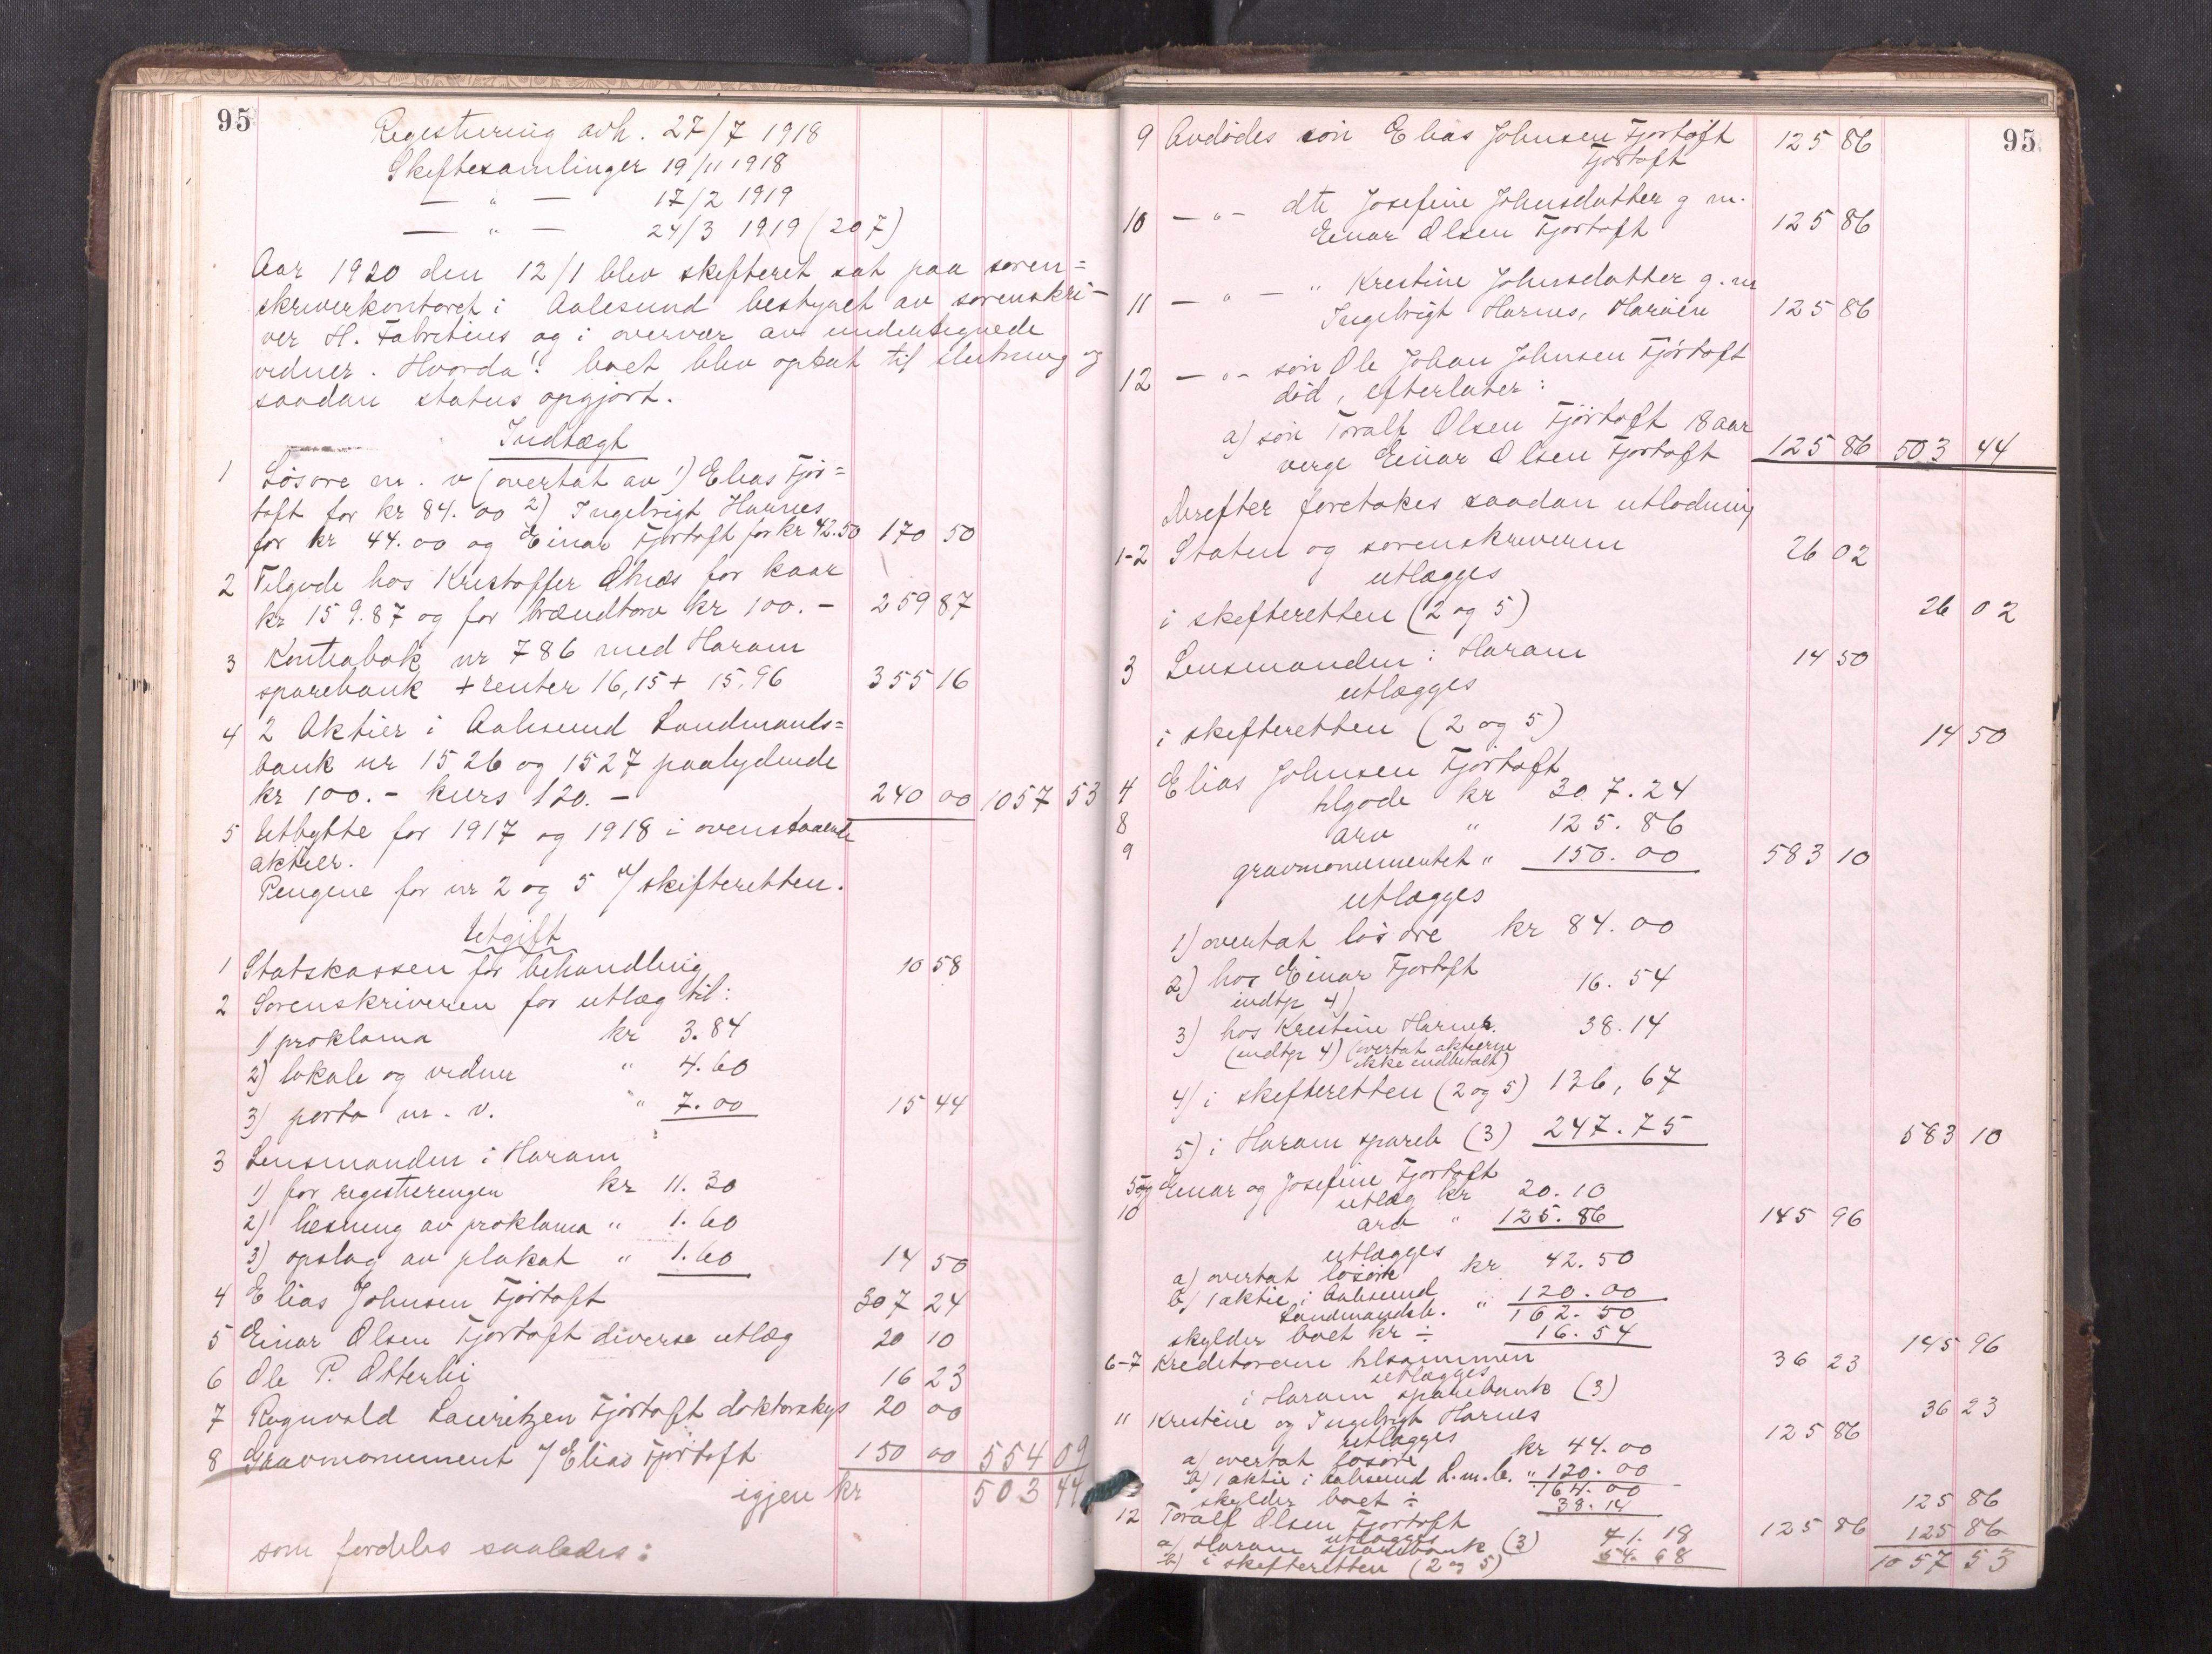 95
Registrering avh. 27/7 1918
Skiftesamlinger 19/11 1918
— " — 17/2 1919
— " — 24/3 1919 (207)
Aar 1920 den 12/1 blev skifteret sat paa soren=
skriverkontoret i Aalesund bestyret av sorenskri-
ver H. Fabritius og i overvær av undertegnede
vidner. Hvorda! boet blev optat til slutning og
saadan status opgjort.
Indtægt
1 Løsøre m. v (overtat av 1) Elias Fjør=
toft for kr 84.00 2) Ingebrigt Harnes
for kr 44.00 og Einar Fjørtoft for kr 42.50 170 50
2 Tilgode hos Kristoffer for kaar
kr 159.87 og for brændtorv kr 100.- 259 87
3 Kontrabok nr 786 med Haram
sparebank + renter 16,15 + 15.96 355 16
4 2 Aktier i Aalesund Landmands=
bank nr 1526 og 1527 paalydende
kr 100.- kurs 120.- 240 00 1057 53
5 Utbytte for 1917 og 1918 i ovenstaaende
aktier.
Pengene for nr 2 og 5 i/ skifteretten.
Utgift
1 Statskassen for behandling 10 58
2 Sorenskriveren for utlæg til:
1) proklama kr 3.84
2) lokale og vidner " 4.60
3) porto m. v. " 7.00 15 44
3 Lensmanden i Haram
1) for registreringen kr 11.30
2) læsning av proklama " 1.60
3) opslag av plakat " 1.60 14 50
4 Elias Johnsen Fjørtoft 307 24
5 Einar Olsen Fjørtoft diverse utlæg 20 10
6 Ole P. Otterlei 16 23
7 Ragnvald Lauritzen Fjørtoft doktorskys 20 00
8 Gravmonument / Elias Fjørtoft 150 00 554 09
igjen kr 503 44
som fordeles saaledes:
95
9 Avdødes søn Elias Johnsen Fjørtoft 125 86
Fjørtoft
10 — " — dtr Josefine Johnsdatter g m.
Einar Olsen Fjørtoft 125 86
11 — " — " Kristine Johnsdatter g. m
Ingebrigt Harnes, Harøen 125 86
12 — " — søn Ole Johan Johnsen Fjørtoft
død, efterlater:
a) søn Toralf Olsen Fjørtoft 18 aar
verge Einar Olsen Fjørtoft 125 86 503 44
Derefter foretakes saadan utlodning
1-2 Staten og sorenskriveren 26 02
utlægges
i skifteretten (2 og 5) 26 02
3 Lensmanden i Haram 14 50
utlægges
i skifteretten (2 og 5) 14 50
4 Elias Johnsen Fjørtoft
tilgode kr 307.24
8 arv " 125.86
9 gravmonumentet " 150.00 583 10
utlægges
1) overtat løsøre kr 84.00
2) hos Einar Fjørtoft 16.54
indtgr 4)
3) hos Kristine Harnes. 38.14
(indtgr 4) (overtat aktierne
ikke indbetalt)
4) i skifteretten (2 og 5) 136,67
5) i Haram spareb (3) 247.75 583 10
5 og Einar og Josefine Fjørtoft
10 utlæg kr 20.10
arv " 125.86 145 96
utlægges
a) overtat løsøre kr 42.50
b) 1 aktie i Aalesund
Landmandsb. " 120.00
162.50
skylder boet kr ÷ 16.54 145 96
6-7 Kreditorerne tilsammen 36 23
utlægges
i Haram sparebank (3) 36 23
11 Kristine og Ingebrigt Harnes 125 86
utlægges
a) overtat løsøre kr 44.00
b) 1 aktie i Aalesund L.m.b. " 120.00
164.00
skylder boet ÷ 38.14 125 86
12 Toralf Olsen Fjørtoft 125 86 125 86
utlægges
a) Haram sparebank (3) 71.18
b) i skifteretten (2 og 5) 54.68 1057 53